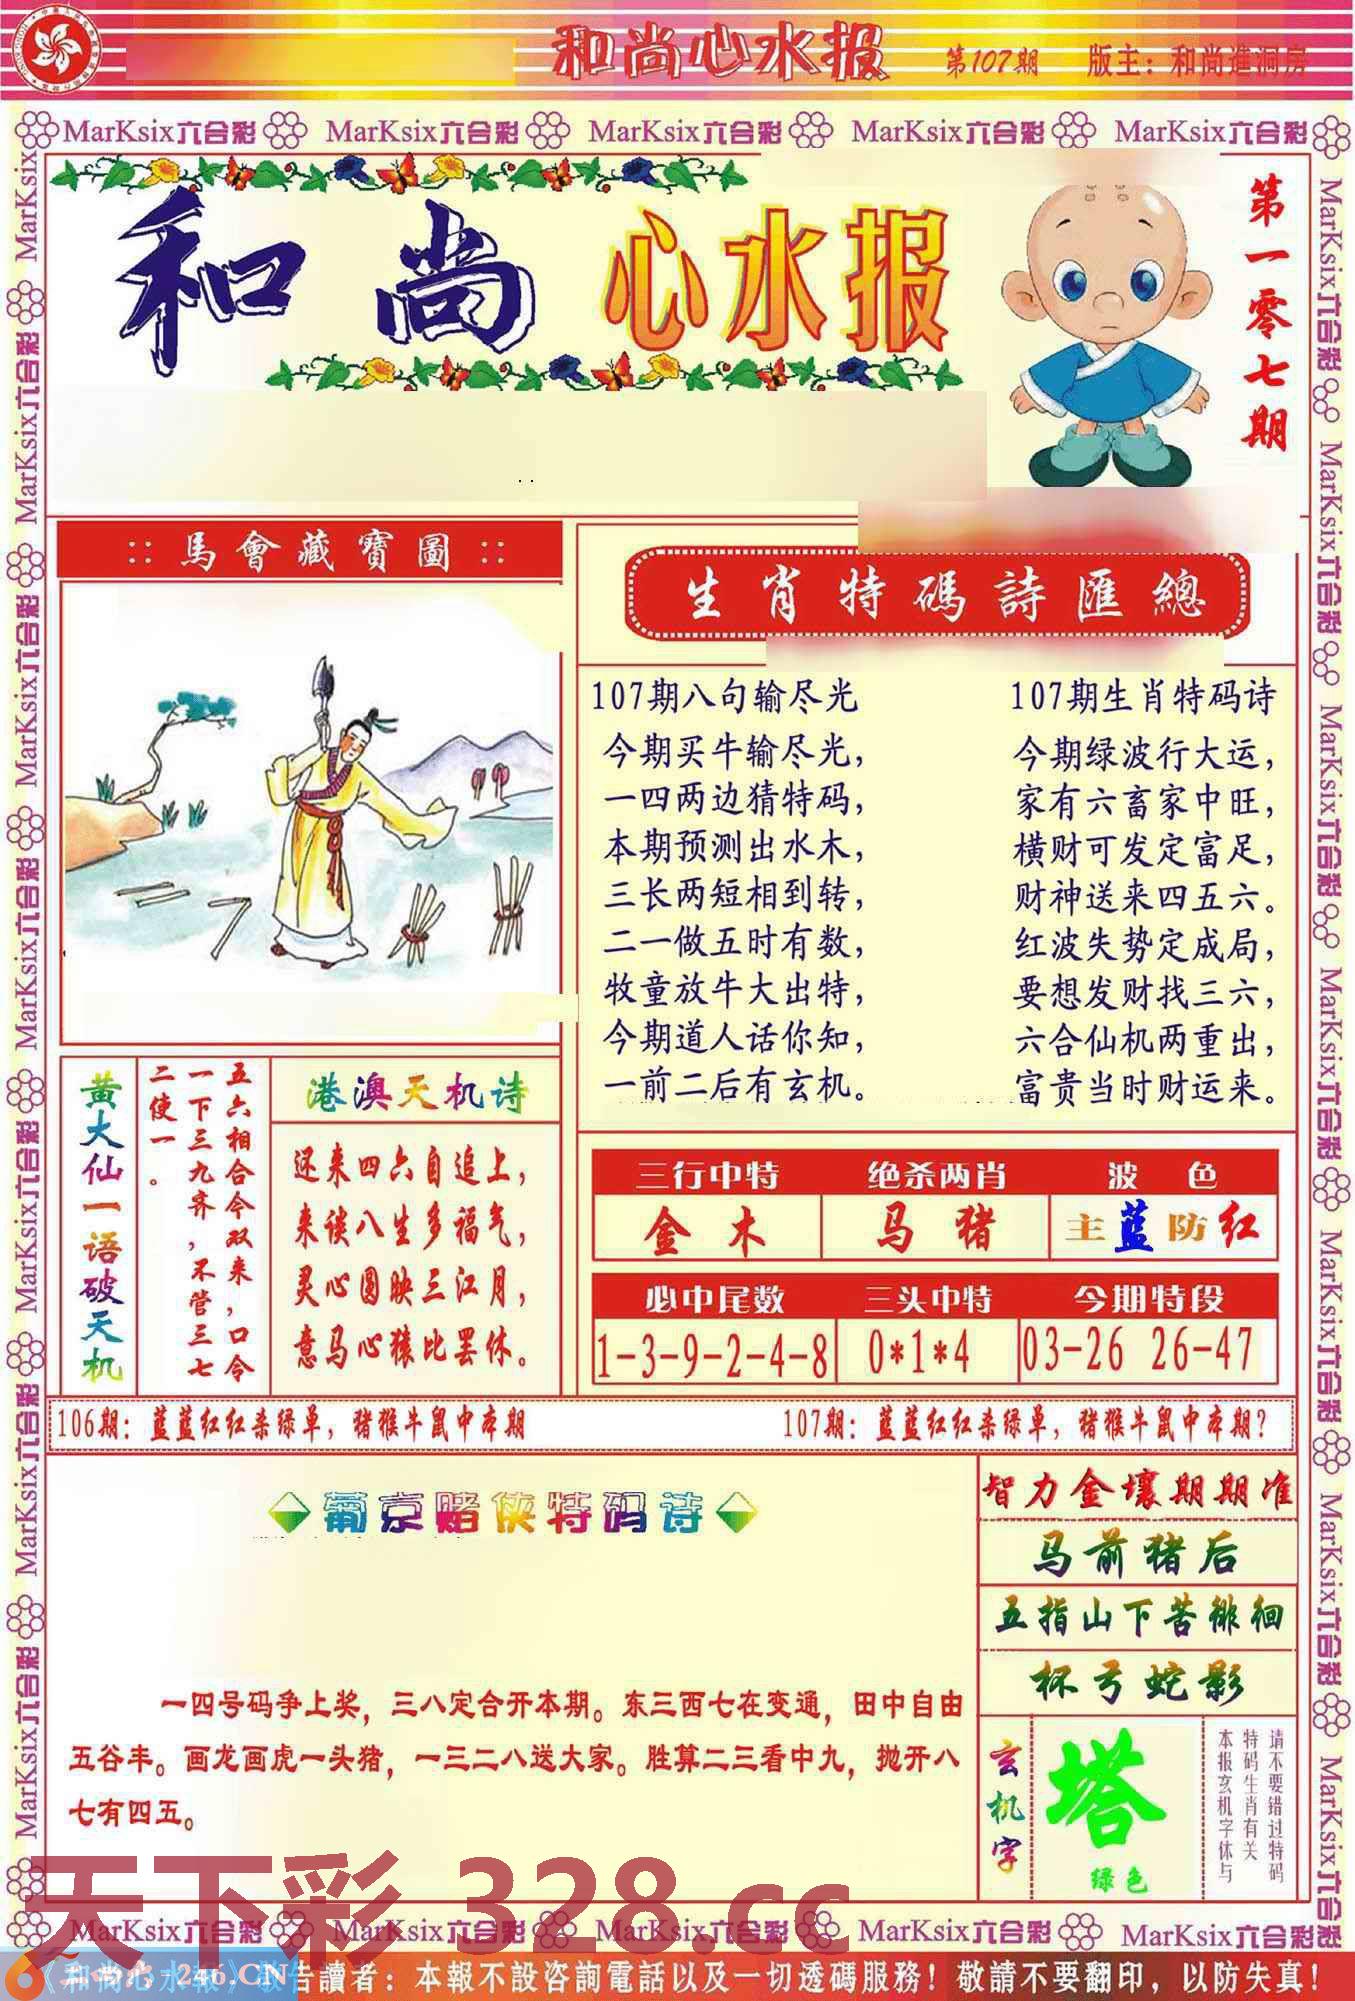 和尚心水报 第107期 版主：和尚進洞房
MarKsix六合彩 MarKsix六合彩 MarKsix六合彩 MarKsix六合彩 MarKsix六合彩
和尚心水报
第一零七期
馬會藏寶圖
生肖特碼詩匯總
107期八句输尽光
今期买牛输尽光，
一四两边猜特码，
本期预测出水木，
三长两短相到转，
二一做五时有数，
牧童放牛大出特，
今期道人话你知，
一前二后有玄机。
107期生肖特码诗
今期绿波行大运，
家有六畜家中旺，
横财可发定富足，
财神送来四五六。
红波失势定成局，
要想发财找三六，
六合仙机两重出，
富贵当时财运来。
黄大仙一语破天机
五六相合今双来，口令
一下三九齐，不管三七
二使一。
港澳天机诗
还来四六自追上，
来谈八生多福气，
灵心圆映三江月，
意马心猿比罢休。
三行中特 绝杀两肖 波色
金木 马猪 主蓝防红
必中尾数 三头中特 今期特段
1-3-9-2-4-8 0*1*4 03-26 26-47
106期：蓝蓝红红杀绿单，猪猴牛鼠中本期
107期：蓝蓝红红杀绿单，猪猴牛鼠中本期？
葡京赌侠特码诗
一四号码争上奖，三八定合开本期。东三西七在变通，田中自由
五谷丰。画龙画虎一头猪，一三二八送大家。胜算二三看中九，抛开八
七有四五。
智力金壤期期准
马前猪后
五指山下苦徘徊
杯弓蛇影
玄机字
塔
绿色
请不要错过特码
特码生肖有关
本报玄机字体与
天下彩 328.cc
MarKsix六合彩 MarKsix六合彩 MarKsix六合彩 MarKsix六合彩 MarKsix六合彩
246.CN
告讀者：本報不設咨詢電話以及一切透碼服務！敬請不要翻印，以防失真！